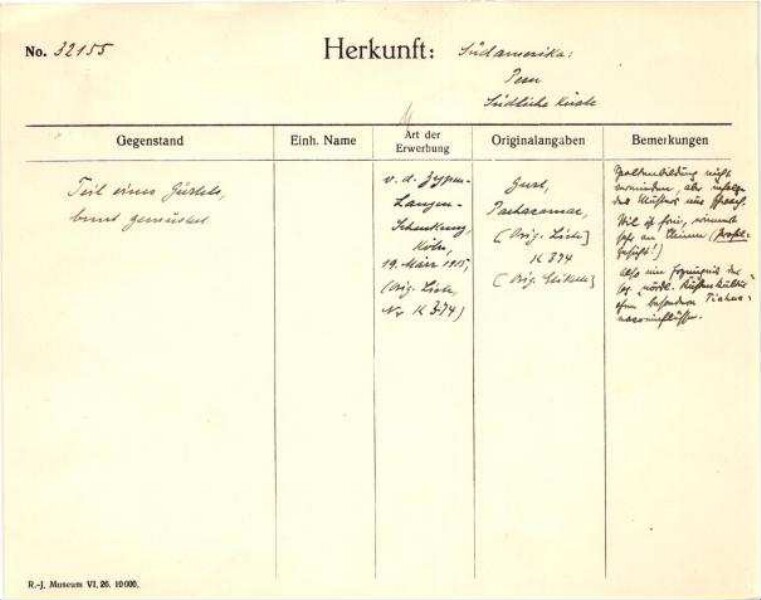 No. 32155
Herkunft: Südamerika:
Peru
Südliche Küste
Gegenstand
Einh. Name
Art der
Erwerbung
Originalangaben
Bemerkungen
Teil eines Gürtels,
bunt gemustert
v. d. Zypen-
Langen-
Schenkung,
Köln,
19. März 1915,
(Orig. Liste,
Nr K 374)
Gurt,
Pachacamac,
[Orig. Liste]
K 374
[Orig. Etikett]
Spaltenbildung nicht
vermieden, als infolge
des Musters
Stil ist fein, erinnert
sehr an
gesicht!)
Also ein Erzeugnis der
sog. nördl. Küstenkultur
ohne besondere Tiahua-
nacoeinflüsse.
R.-J. Museum VI. 26. 10000.